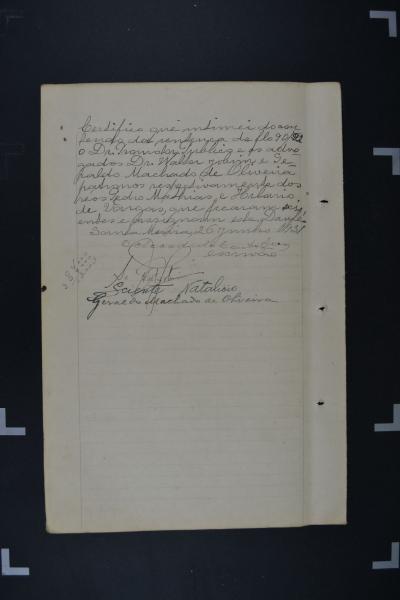 Certifico que intimei do con
tendo da sentença de fls 90/92
o Dr. Promotor Publico e os advo
gados Dr. Walter Jobim e Ge
raldo Machado de Oliveira
patronos respectivamente dos
reos Pedro Mathias, e Hilario
de Vargas, que ficaram sci
entes e assignam esta. Dou fé
Santa Maria, 26 Junho 1931
escrivão
Sciente Natalicio
Geraldo Machado de Oliveira